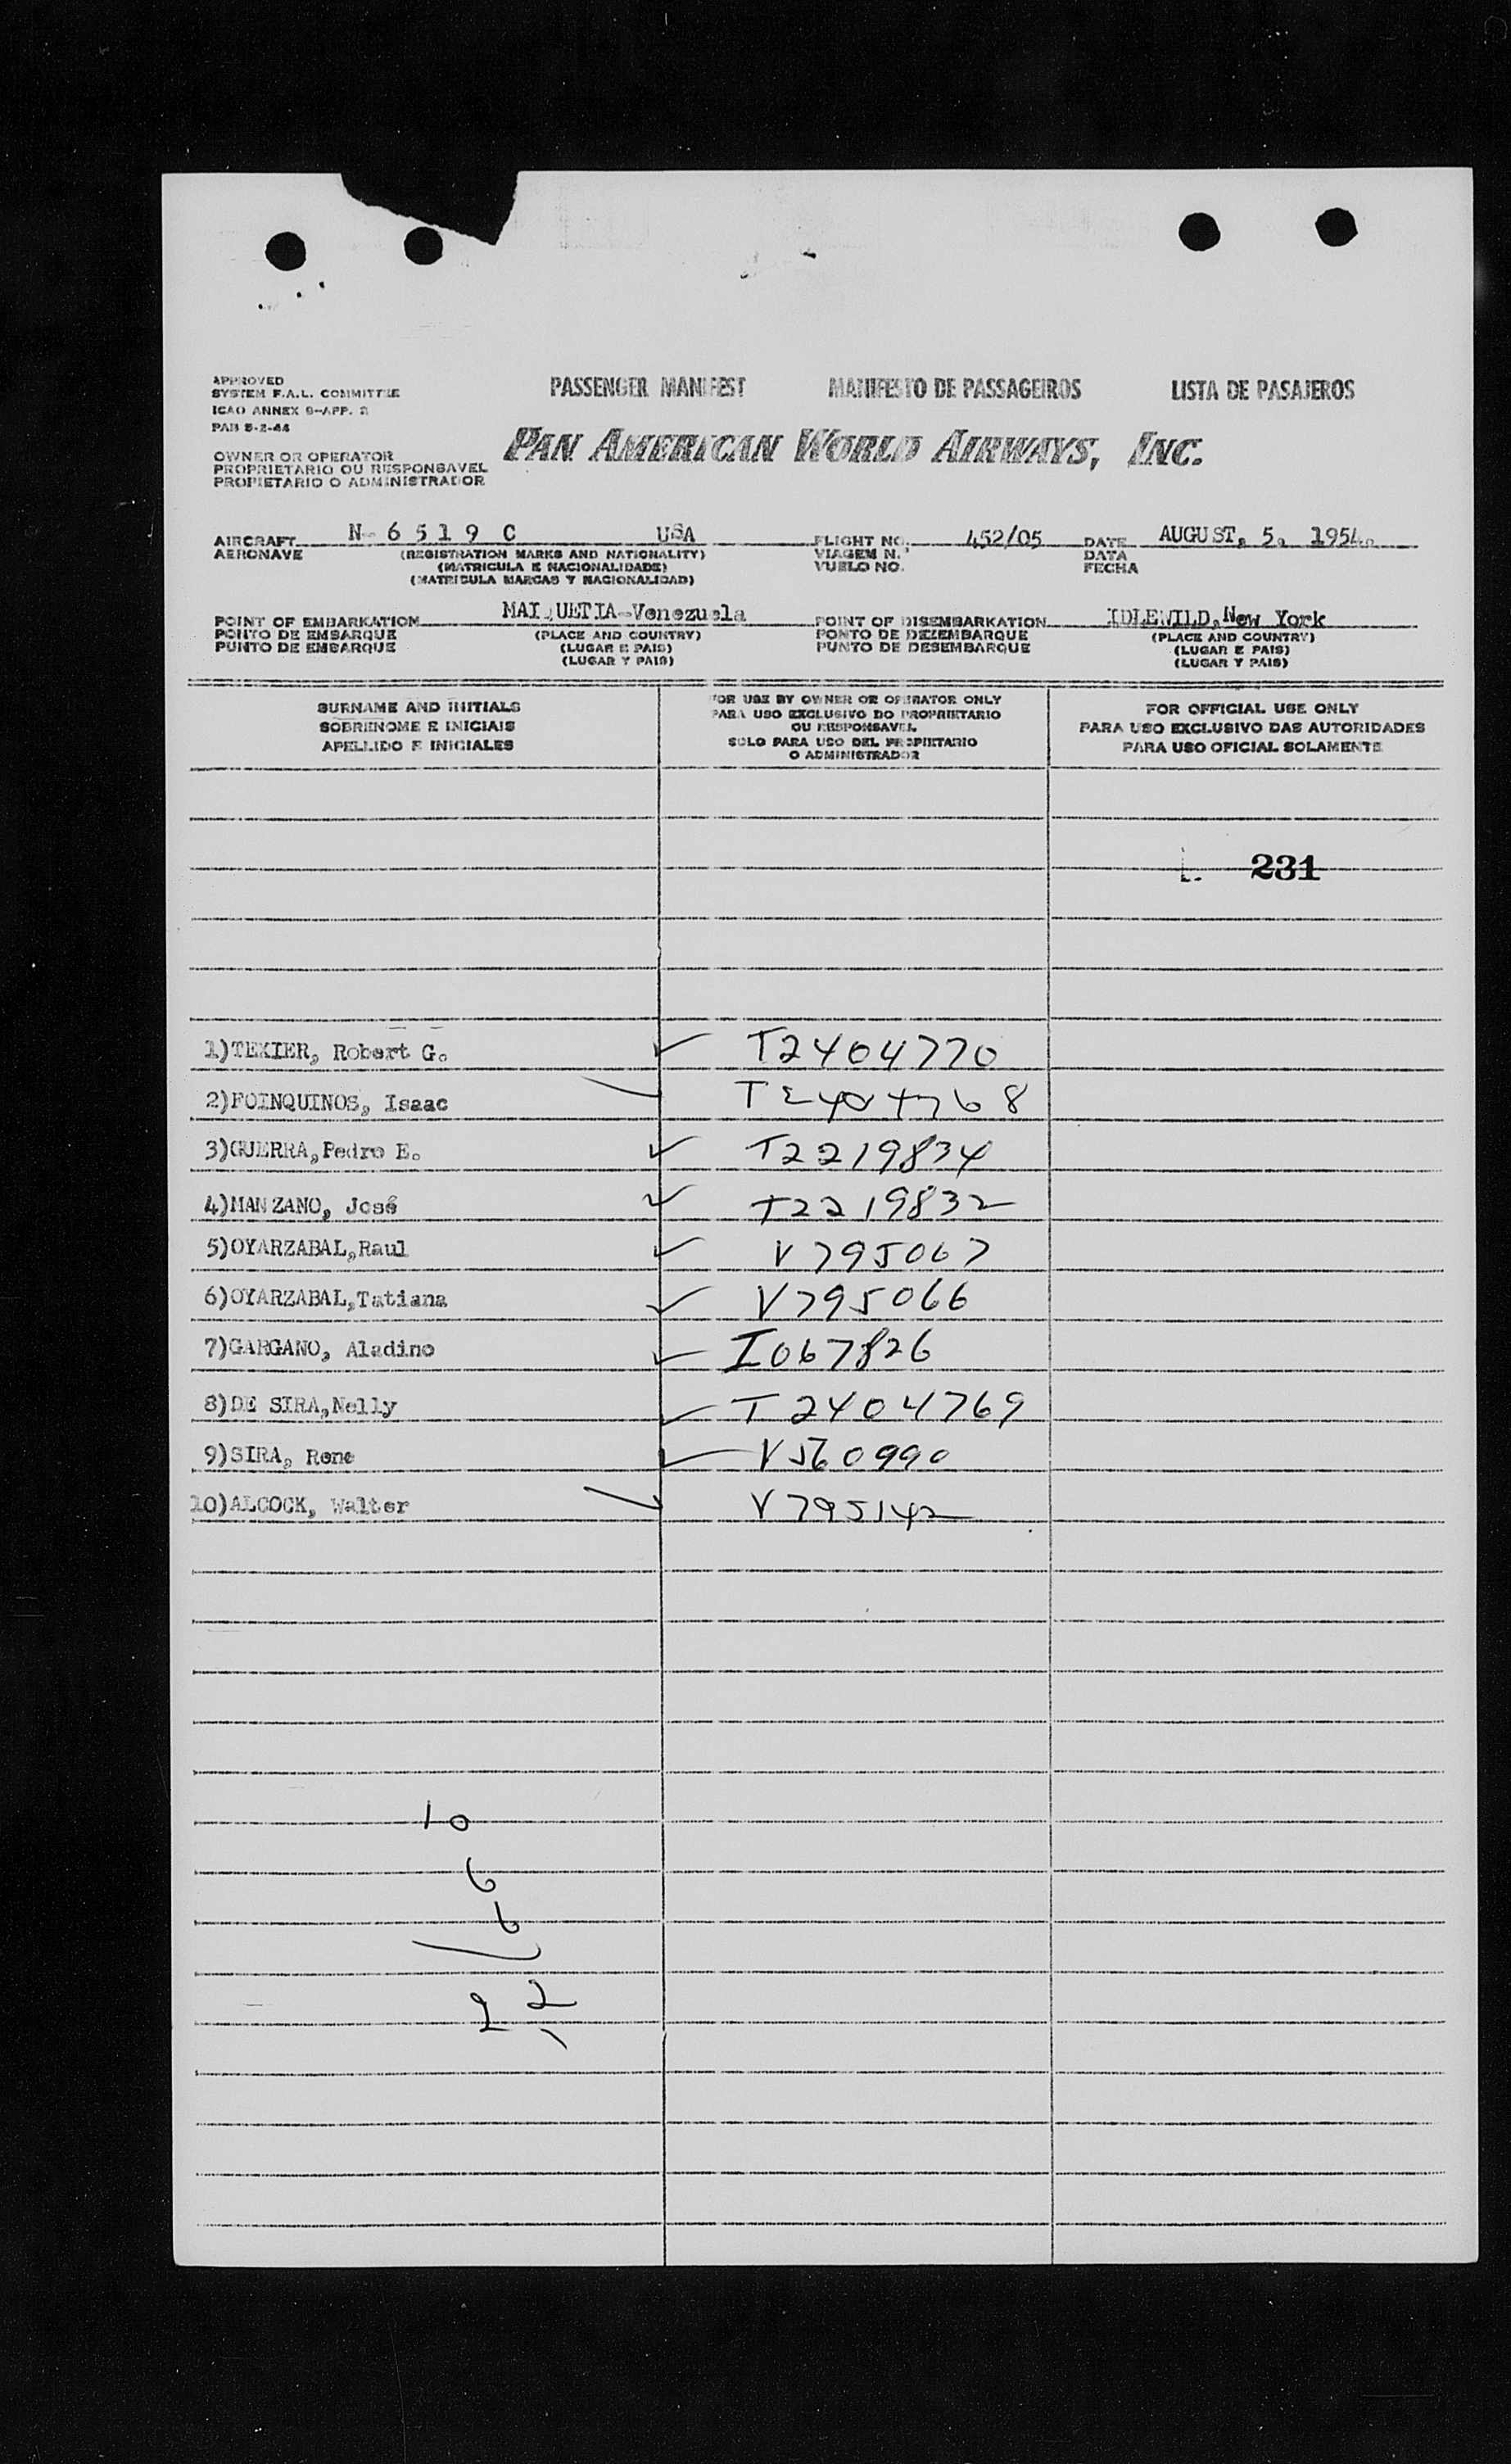 APPROVED
SYSTEM F.A.L. COMMITTEE
ICAO ANNEX 9-APP. 2
PAN 5-2-44
PASSENGER MANIFEST MANIFESTO DE PASSAGEIROS LISTA DE PASAJEROS
PAN AMERICAN WORLD AIRWAYS, INC.
OWNER OR OPERATOR
PROPRIETARIO OU RESPONSAVEL
PROPIETARIO O ADMINISTRADOR
AIRCRAFT N- 6 5 1 9 C USA FLIGHT NO. 452/05 DATE AUGUST, 5, 1954.
AERONAVE (REGISTRATION MARKS AND NATIONALITY) VIAGEM N. DATA
(MATRICULA E NACIONALIDADE) VUELO NO. FECHA
(MATRICULA MARCAS Y NACIONALIDAD)
POINT OF EMBARKATION MAIQUETIA-Venezuela POINT OF DISEMBARKATION IDLEWILD, New York
PONTO DE EMBARQUE (PLACE AND COUNTRY) PONTO DE DEZEMBARQUE (PLACE AND COUNTRY)
PUNTO DE EMBARQUE (LUGAR E PAIS) PUNTO DE DESEMBARQUE (LUGAR E PAIS)
(LUGAR Y PAIS) (LUGAR Y PAIS)
SURNAME AND INITIALS
SOBRENOME E INICIAIS
APELLIDO E INICIALES
FOR USE BY OWNER OR OPERATOR ONLY
PARA USO EXCLUSIVO DO PROPRIETARIO
OU RESPONSAVEL
SOLO PARA USO DEL PROPIETARIO
O ADMINISTRADOR
FOR OFFICIAL USE ONLY
PARA USO EXCLUSIVO DAS AUTORIDADES
PARA USO OFICIAL SOLAMENTE
231
1)TEXIER, Robert G. T2404770
2)FOINQUINOS, Isaac T2404768
3)GUERRA,Pedro E. T2219834
4)MANZANO, José T2219832
5)OYARZABAL,Raul V795067
6)OYARZABAL,Tatiana V795066
7)GARGANO, Aladino I067826
8)DE SIRA,Nelly T2404769
9)SIRA, Rene V560990
10)ALCOCK, Walter V795142
10
6
6
22